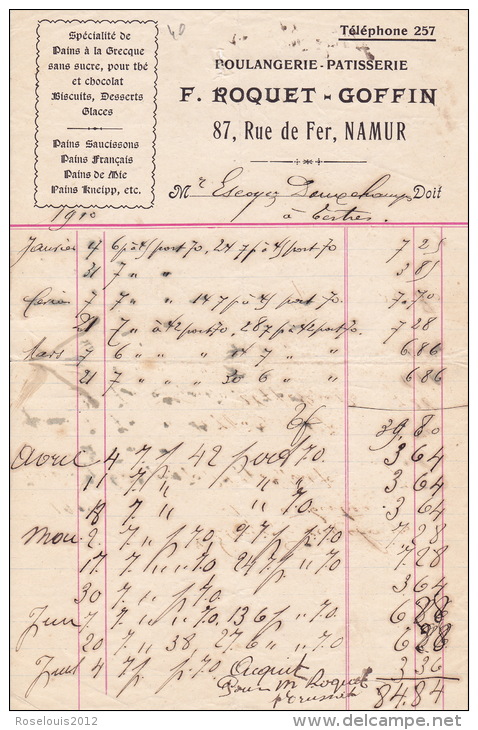 Téléphone 257
Spécialité de
Pains à la Grecque
sans sucre, pour thé
et chocolat
Biscuits, Desserts
Glaces
Pains Saucissons
Pains Français
Pains de Mie
Pains Kneipp, etc.
BOULANGERIE-PATISSERIE
F. ROQUET-GOFFIN
87, Rue de Fer, NAMUR
Mr Escoyez Doit
à Tertre
1910
Janvier 7 6 p à 45 port 70, 24 7 p à 45 port 70 7 25
31 7 " " 3 85
7 7 " " 14 7 p à 45 port 70. 7.70
21 7 " à 42 port 70, 28 7 p à 42 port 70. 7 28
Mars 7 6 " " " 14 7 " " " 6 86
21 7 " " " 30 6 " " 6 86
39,80
Avril 4 7 p 42 port 70. 3 64
11 7 " " " 3 64
18 7 " " 70. 3 64
2. 7 " p 70. 9 7 p p 70 7 28
17. 7 " " 70. 24 7 p " 70 7 28
30 7 p 70. 3 64
Juin 7 7 " " 70. 13 6 p " 70 6 28
20 7 " 38. 27. 6 " " 70 6 28
4 7 p. p 70. 3 36
Acquit
Pour M Roquet
84.84
Roselouis2012
www.delcampe.net